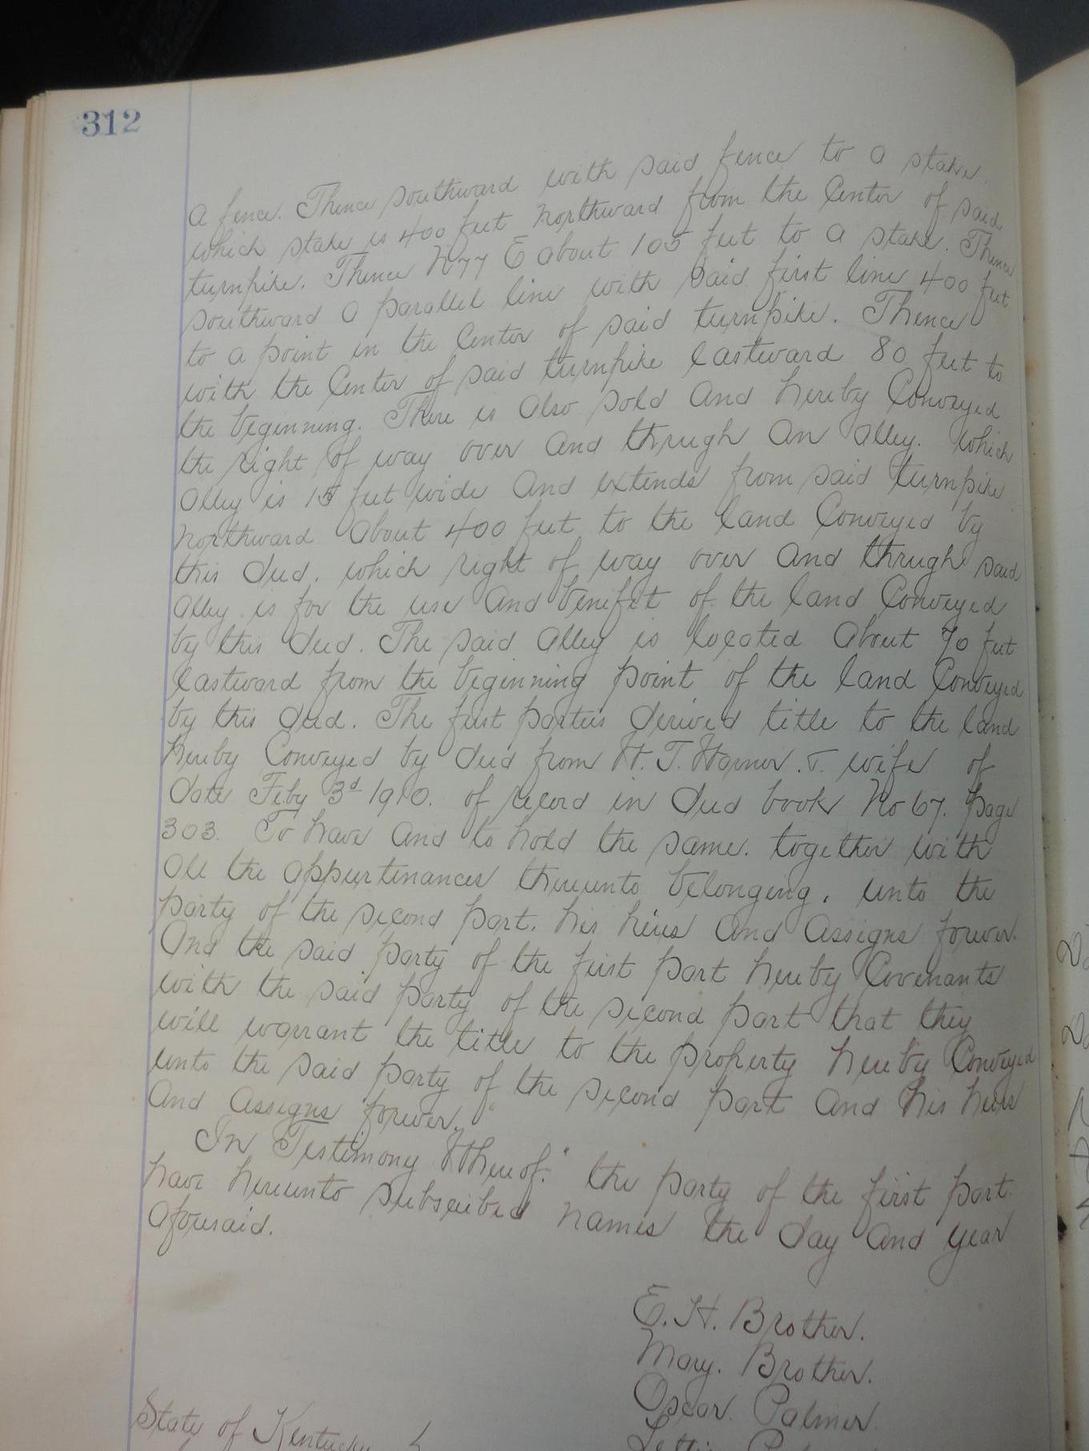 312
a fence. Thence southward with said fence to a stake
which stake is 400 feet northward from the Center of said
turnpike. Thence N 77 E about 105 feet to a stake. Thence
southward a parallel line with said first line 400 feet
to a point in the Center of said turnpike. Thence
with the Center of said turnpike Eastward 80 feet to
the beginning. There is also sold and hereby Conveyed
the right of way over and through an alley. which
alley is 15 feet wide and extends from said turnpike
northward about 400 feet to the land Conveyed by
this deed. which right of way over and through said
alley is for the use and benifit of the land Conveyed
by this deed. The said alley is located about feet
Eastward from the beginning point of the land Conveyed
by this deed. The first parties derived title to the land
hereby Conveyed by deed from H. T. & wife of
date Feby 3d 1910. of record in deed book No 67. page
303. To have and to hold the same. together with
all the appurtinances thereunto belonging, unto the
party of the second part. his heirs and assigns forever.
And the said party of the first part hereby Covenants
with the said party of the second part that they
will warrant the title to the property hereby Conveyed
unto the said party of the second part and his heirs
and assigns forever.
In Testimony Whereof. the party of the first part
have hereunto subscribed names the day and year
aforesaid.
E. H. Brother.
Mary. Brother.
Oscar. Palmer.
State of Kentucky